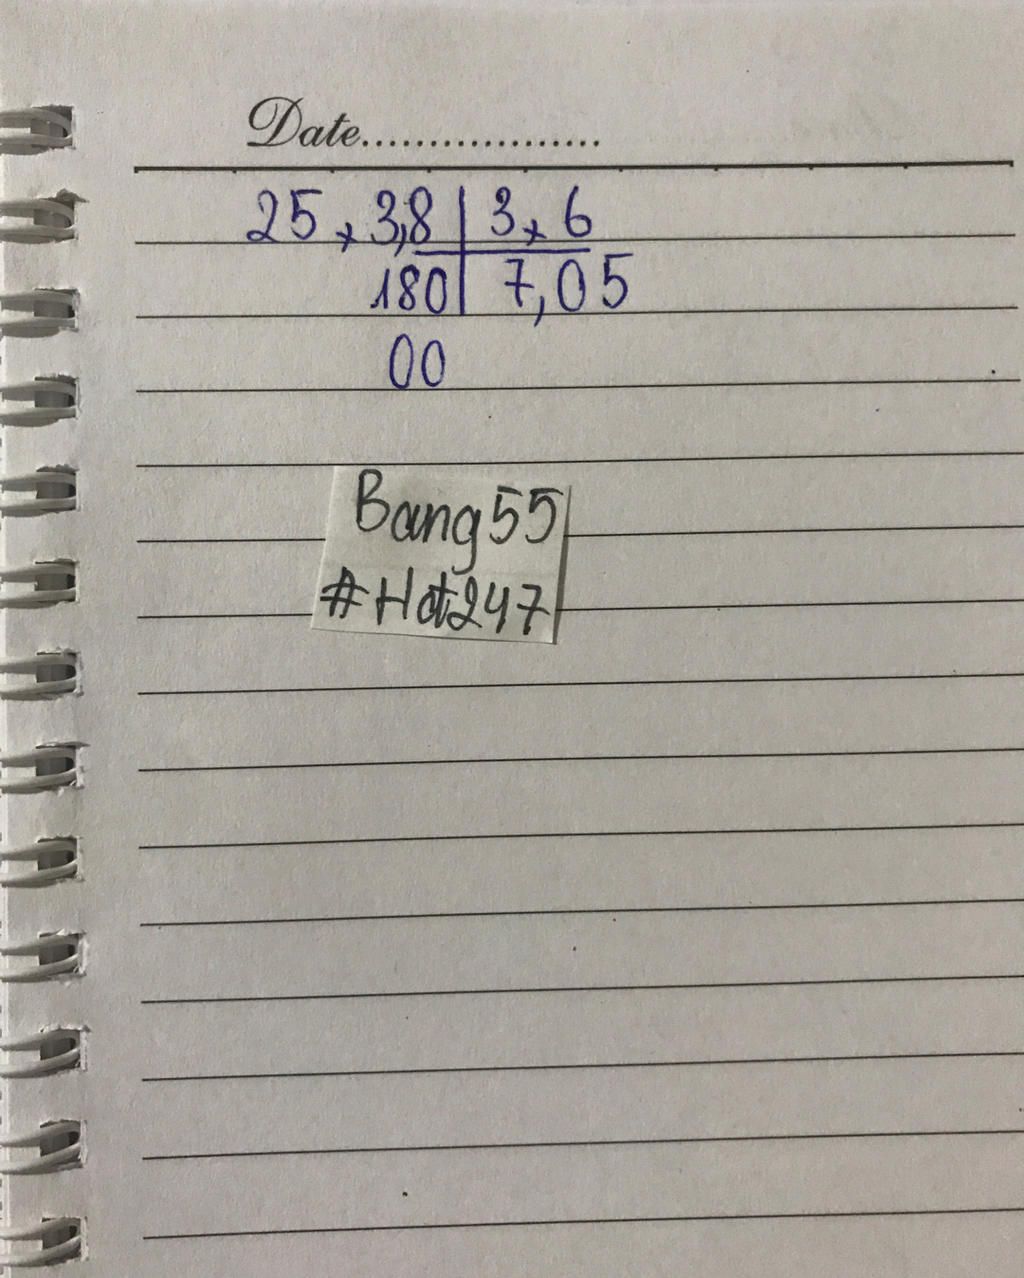 Date..................
25 × 3,8 | 3 × 6
180 | 7,05
00
Bang55
#Hot247